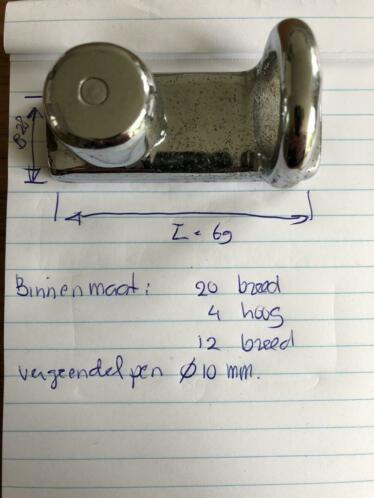 B=28
L = 69
Binnenmaat: 20 breed
4 hoog
12 breed
vergrendelpen Ø 10 mm.